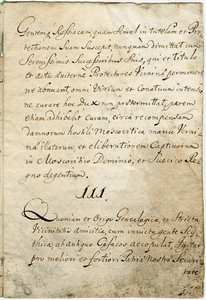 Gentem Rossiacam quam Armet in tutelam et Pro-
tectionem Suam Suscepit, nunquam dimittat cum
Serenissimis Successoribus Suis, qui et Titulo
et actu
Protectores
permanent
ne abnuent, omni Virium et Conatuum intensio-
ne curare hoc Dux non praetermittat, parem
etiam adhibebit Curam, circa recompensam
damnorum hostili Moscovitica manu Ucrai-
nae illatorum et eliberationem Captivorum
in Moscovitico Dominio, et Suecico Re-
gno degentium.
III.
Quoniam et Origo Genealogica, et Stricta
Vicinitatis amicitia, cum invicta gente Scy-
thica, ab antiquo Cosacos accopulat, igitur
pro meliori et fortiori Patriae nostrae Securi-
tate